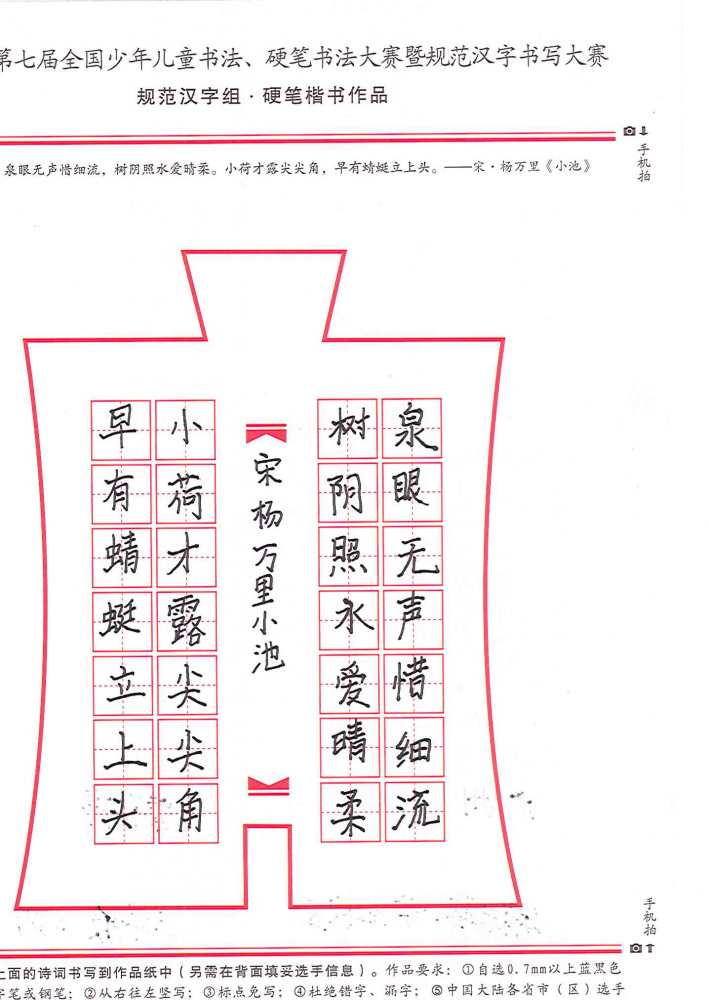 第七届全国少年儿童书法、硬笔书法大赛暨规范汉字书写大赛
规范汉字组·硬笔楷书作品
手机拍
泉眼无声惜细流，树阴照水爱晴柔。小荷才露尖尖角，早有蜻蜓立上头。——宋·杨万里《小池》
泉眼无声惜细流
树阴照水爱晴柔
宋杨万里小池
小荷才露尖尖角
早有蜻蜓立上头
手机拍
上面的诗词书写到作品纸中（另需在背面填妥选手信息）。作品要求：①自选0.7mm以上蓝黑色
字笔或钢笔；②从右往左竖写；③标点免写；④杜绝错字、漏字；⑤中国大陆各省市（区）选手